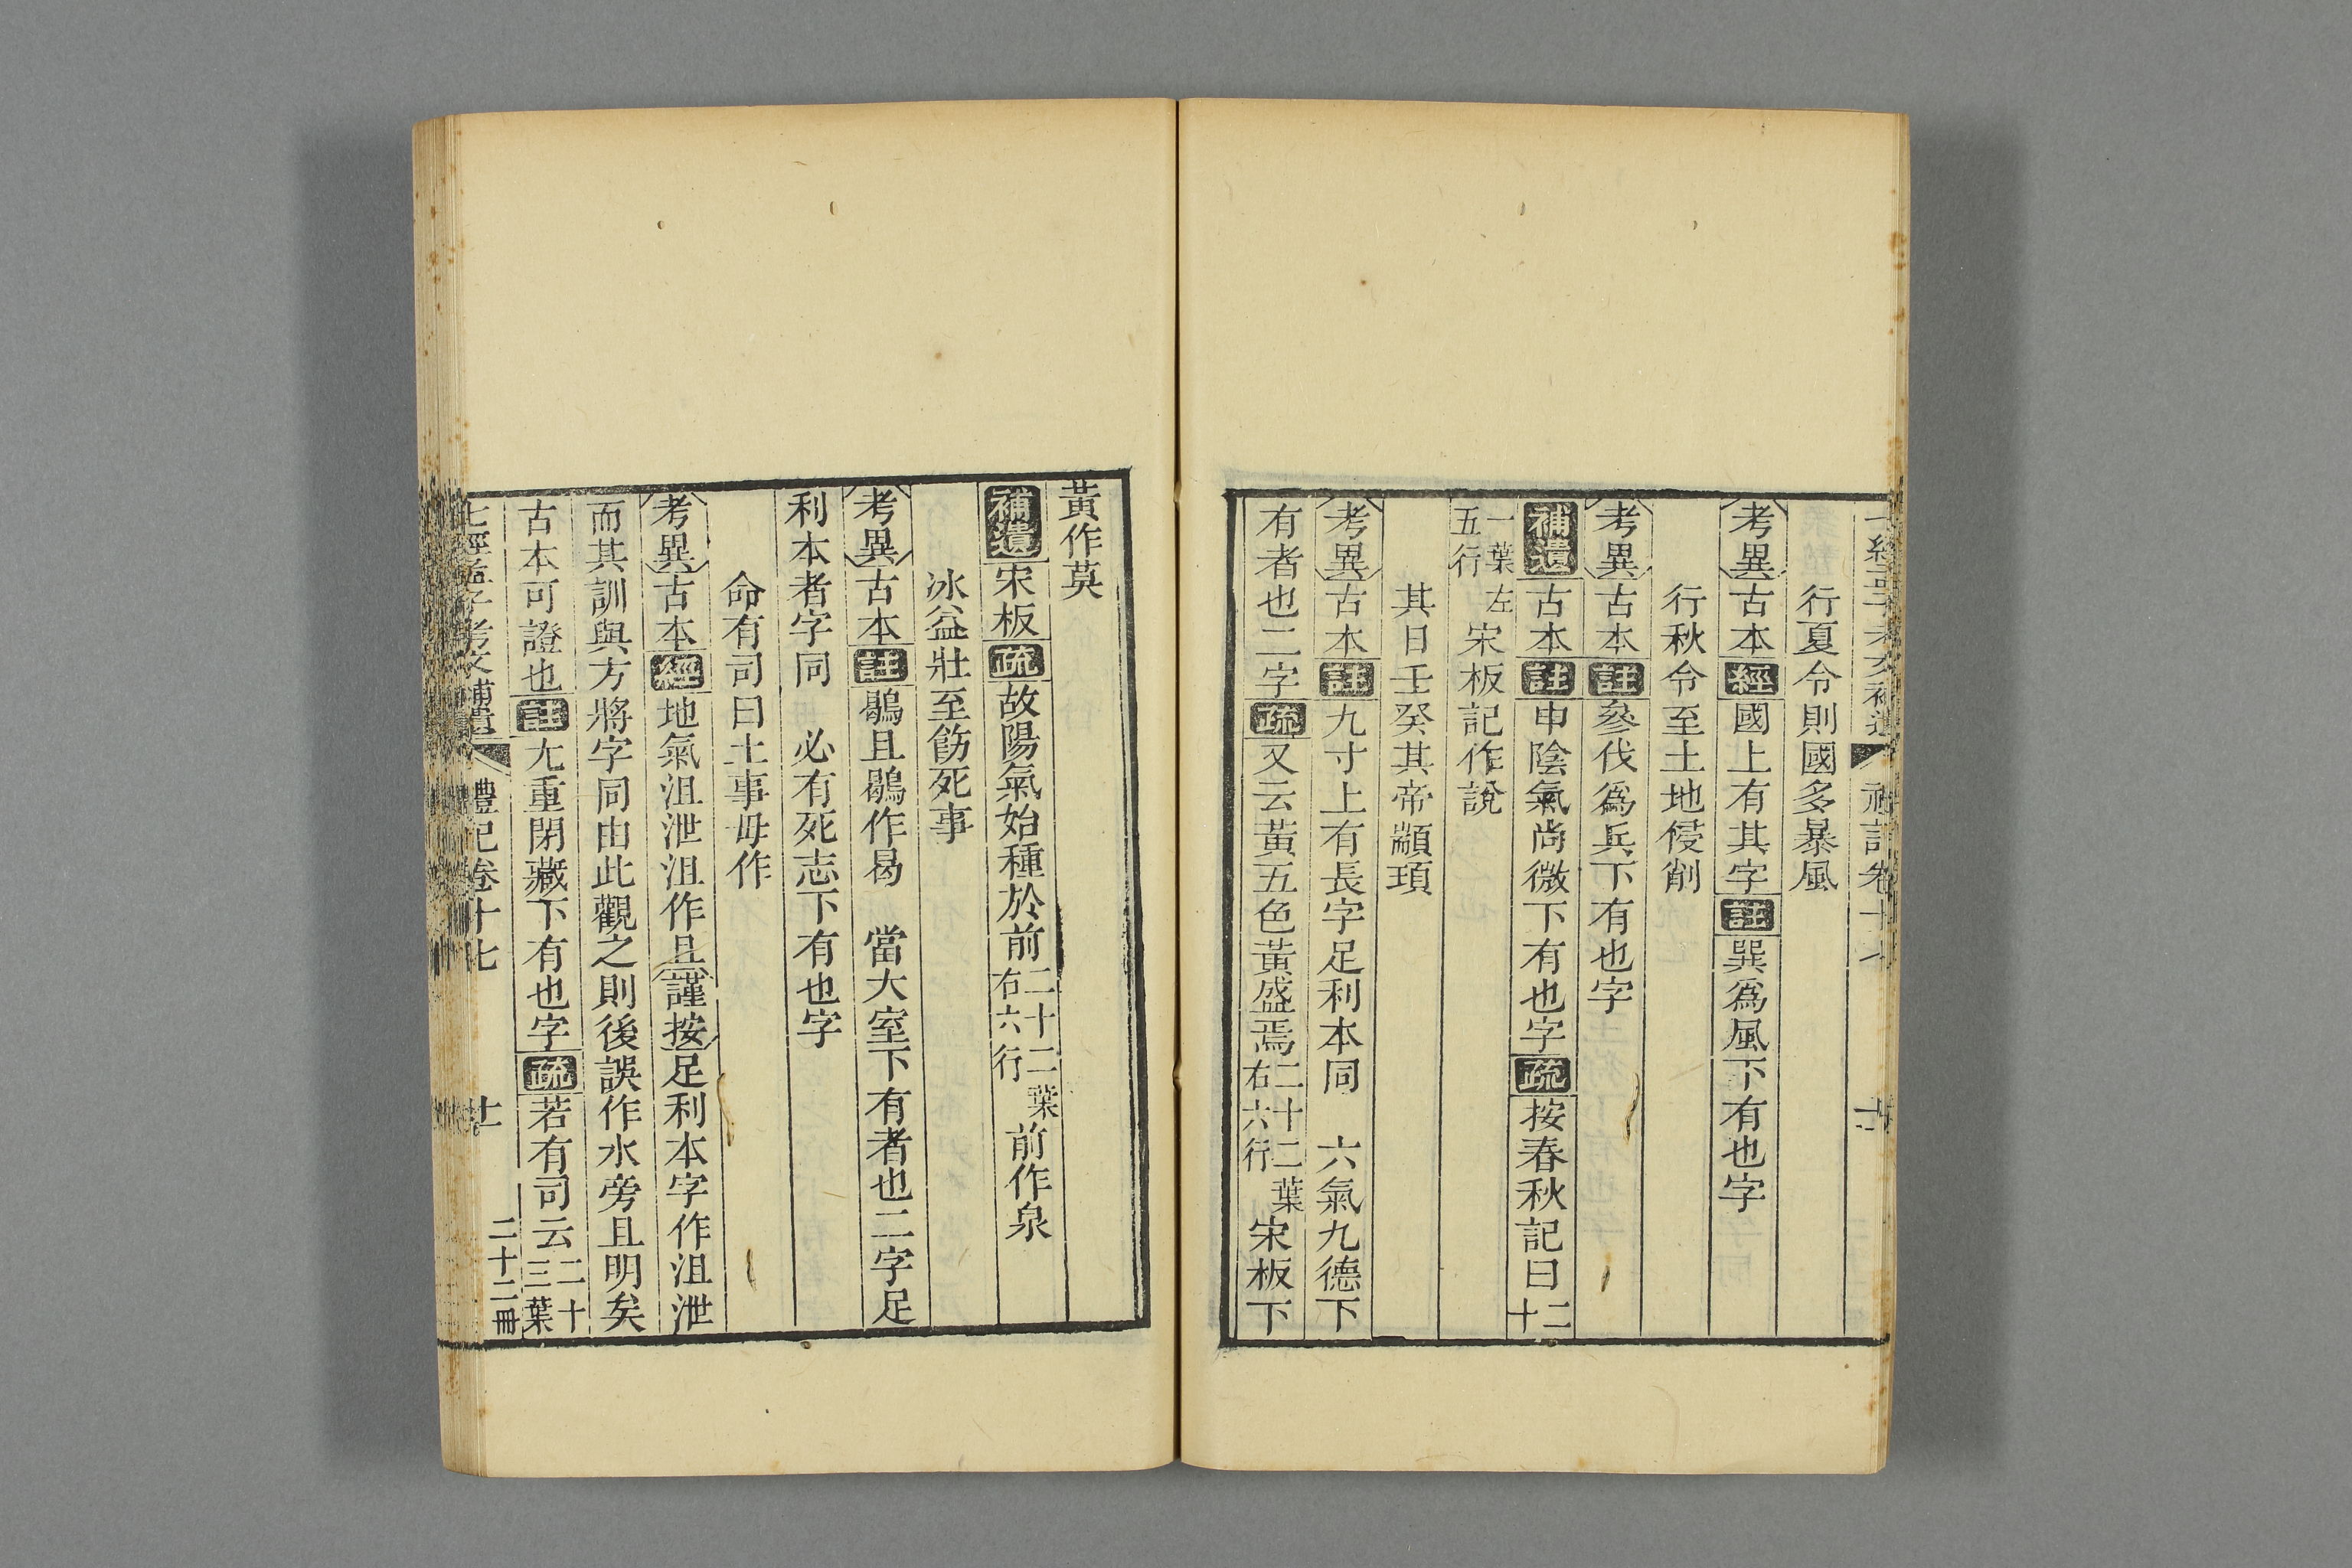 行夏令則國多暴風
考異古本經國上有其字註巽爲風下有也字
行秋令至土地侵削
考異古本註參伐爲兵下有也字
補遺古本註申陰氣尚微下有也字疏按春秋記曰二十
一葉左五行宋板記作說
其日壬癸其帝顓頊
考異古本註九寸上有長字足利本同　六氣九德下
有者也二字疏又云黃五色黃盛焉二十二葉右六行宋板下
黃作莫
補遺宋板疏故陽氣始種於前二十二葉右六行前作泉
冰益壯至飭死事
考異古本註鶡旦鶡作曷　當大室下有者也二字足
利本者字同　必有死志下有也字
命有司曰土事毋作
考異古本經地氣沮泄沮作且謹按足利本字作沮泄
而其訓與方將字同由此觀之則後誤作水旁且明矣
古本可證也註尢重閉藏下有也字疏若有司云二十三葉
七經孟子考文補遺　禮記卷十七　廿一　二十二冊